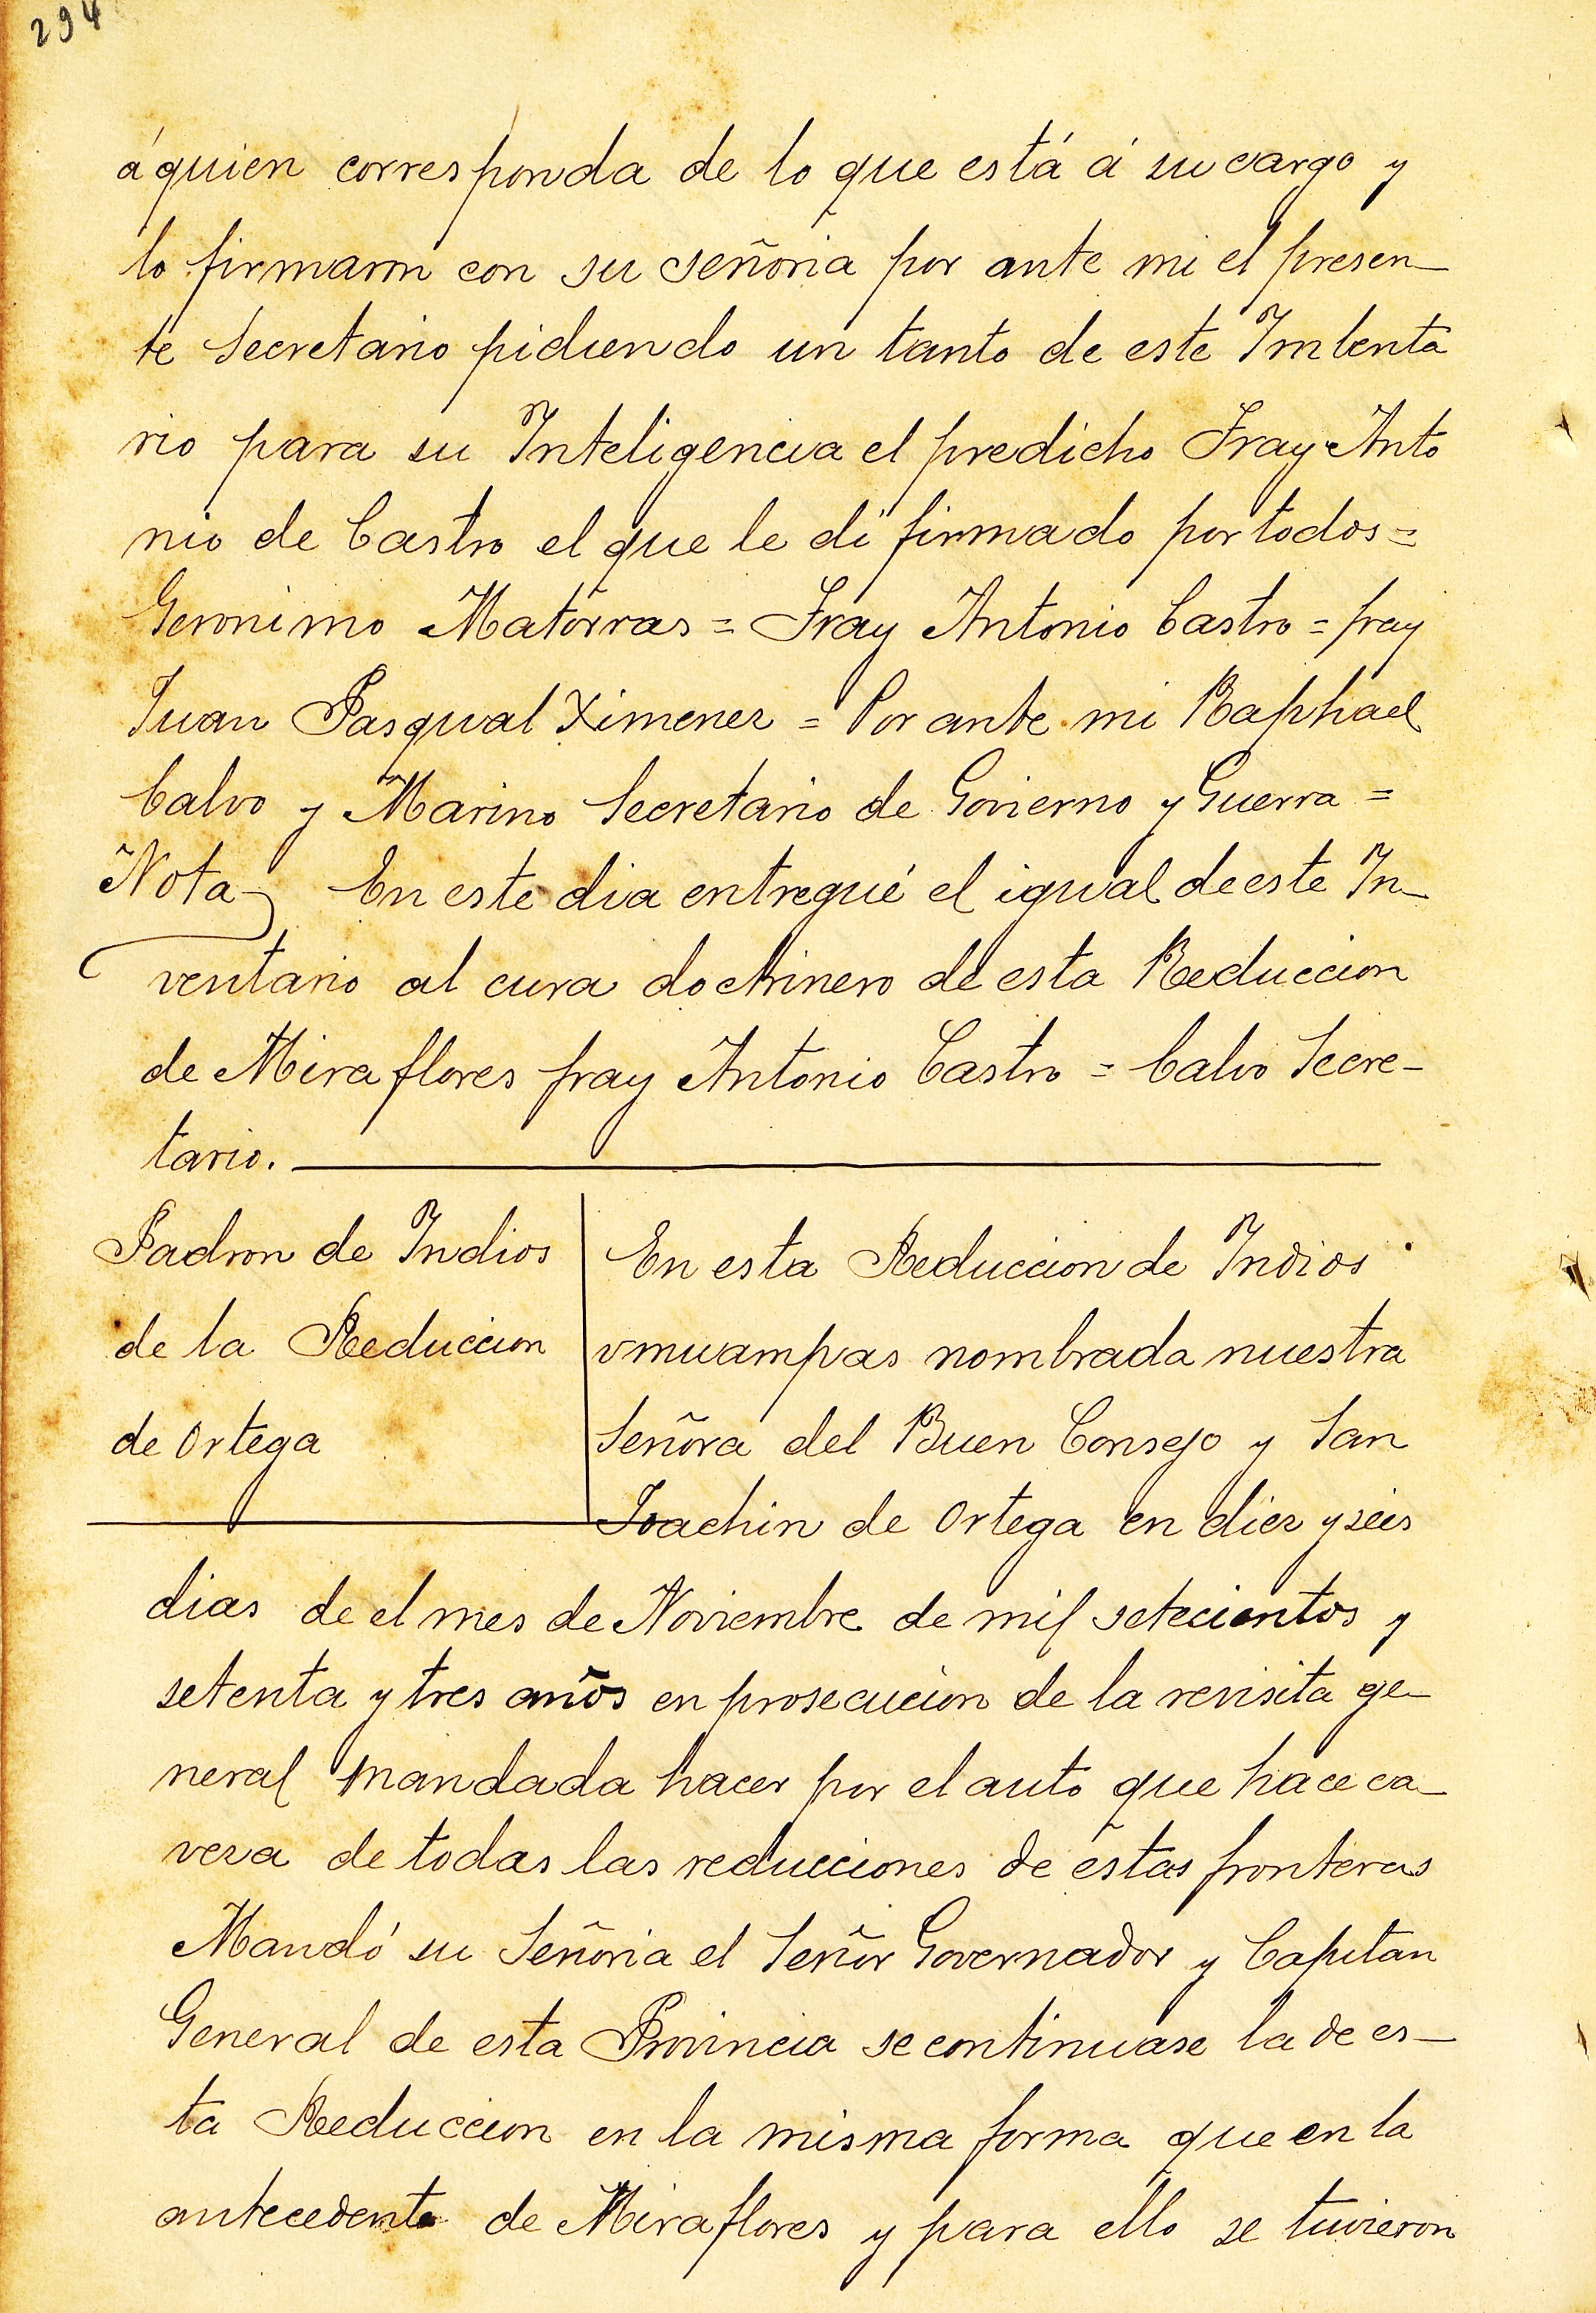 294
á quien corresponda de lo que está á su cargo y
lo firmaron con su señoria por ante mi el presen-
te Secretario pidiendo un tanto de este Imbenta
rio para su Inteligencia el predicho Fray Anto
nio de Castro el que le di firmado por todos =
Geronimo Matorras = Fray Antonio Castro = fray
Juan Pasqual Ximenez = Por ante mi Raphael
Calvo y Marino Secretario de Govierno y Guerra =
Nota En este dia entregué el igual de este In-
ventario al cura doctrinero de esta Reduccion
de Miraflores fray Antonio Castro = Calvo Secre-
tario.
Padron de Indios
de la Reduccion
de Ortega
En esta Reduccion de Indios
vmuampas nombrada nuestra
Señora del Buen Consejo y San
Joachin de Ortega en diez y seis
dias de el mes de Noviembre de mil setecientos y
setenta y tres años en prosecucion de la revisita ge-
neral mandada hacer por el auto que hace ca-
veza de todas las reducciones de estas fronteras
Mandó su Señoria el Señor Governador y Capitan
General de esta Provincia se continuase la de es-
ta Reduccion en la misma forma que en la
antecedente de Miraflores y para ello se tuvieron